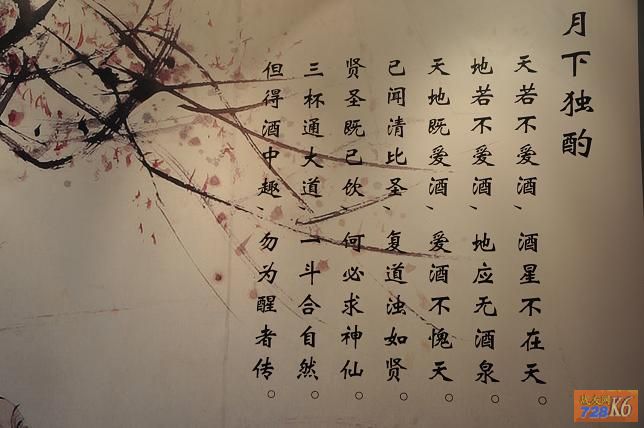 月下独酌
天若不爱酒、酒星不在天。
地若不爱酒、地应无酒泉。
天地既爱酒、爱酒不愧天。
已闻清比圣、复道浊如贤。
贤圣既已饮、何必求神仙。
三杯通大道、一斗合自然。
但得酒中趣、勿为醒者传。
728K6